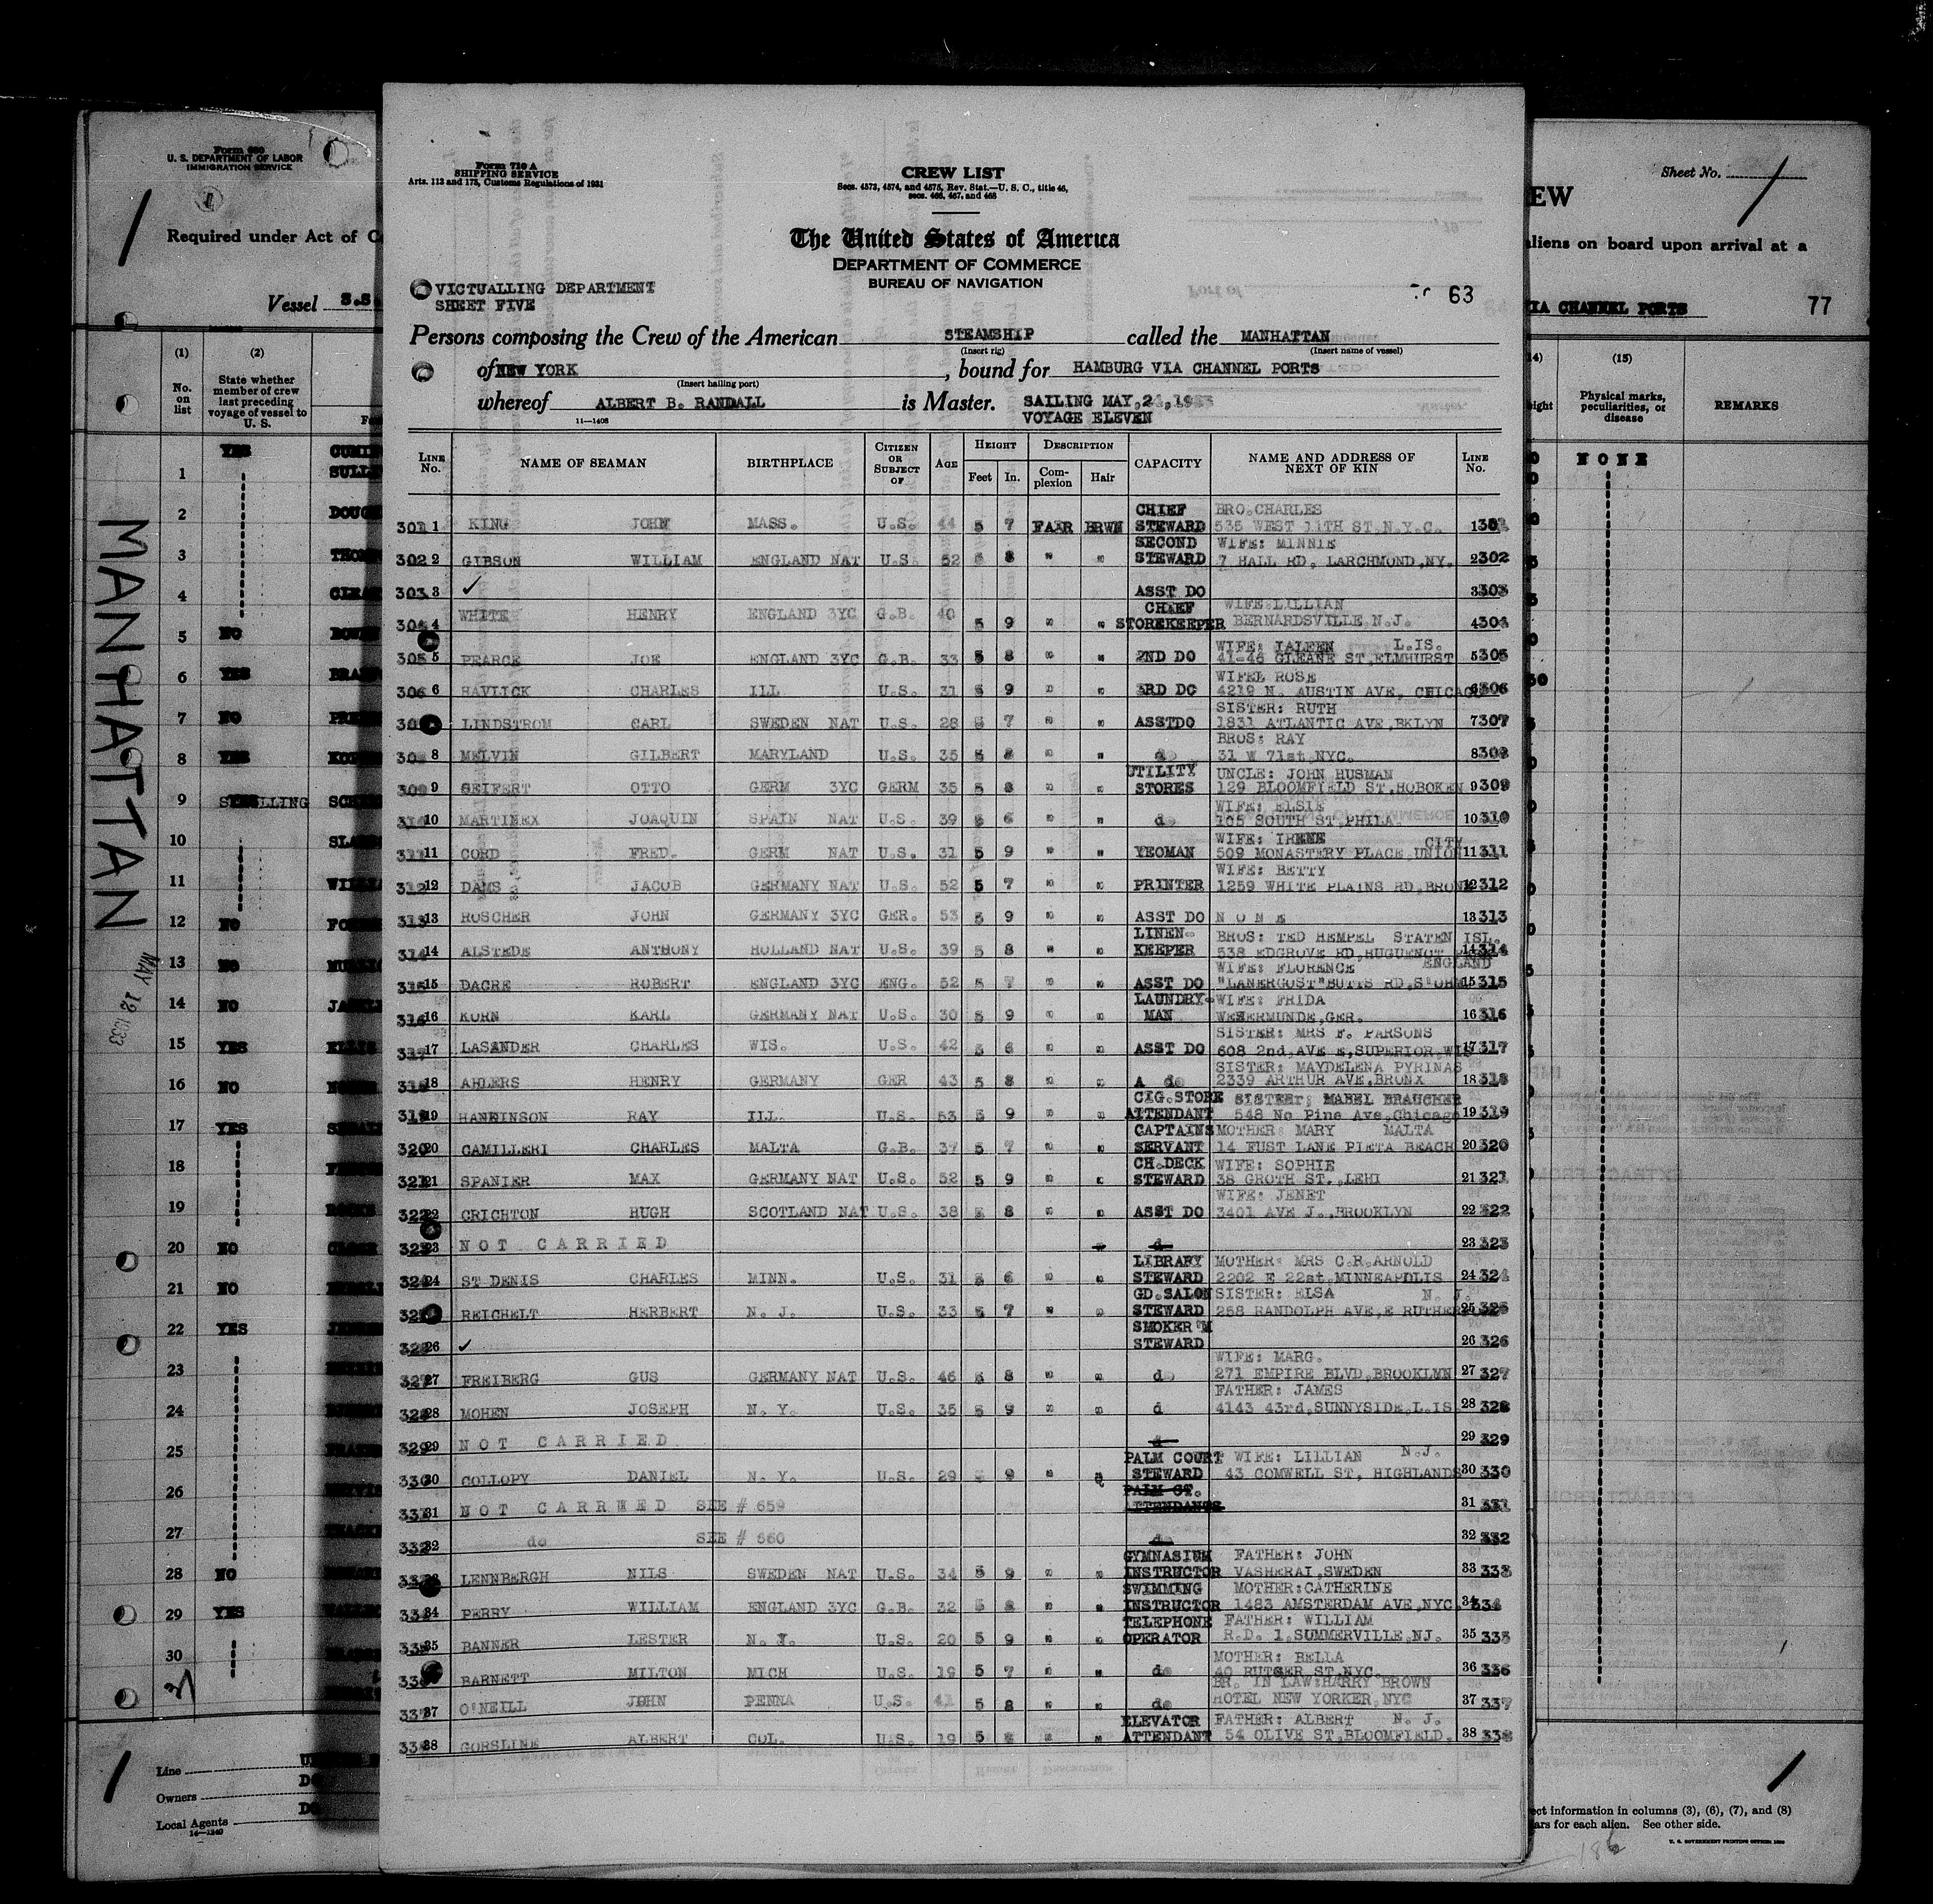 Form 680
U. S. DEPARTMENT OF LABOR
IMMIGRATION SERVICE
Required under Act of
Vessel S.S.
(1) (2)
No. on list
State whether member of crew last preceding voyage of vessel to U. S.
YES
1
2
3
4
5 NO
6 YES
7 NO
8 YES
9
10
11
12 NO
13 NO
14 NO
15 YES
16 NO
17 YES
18
19
20 NO
21 NO
22 YES
23
24
25
26
27
28 NO
29 YES
30
MANHATTAN
MAY 12 1933
Line
Owners
Local Agents
14—1240
Form 710 A
SHIPPING SERVICE
Arts. 112 and 175, Customs Regulations of 1931
CREW LIST
Secs. 4573, 4574, and 4575, Rev. Stat.—U. S. C., title 46,
secs. 466, 467, and 468
The United States of America
DEPARTMENT OF COMMERCE
BUREAU OF NAVIGATION
VICTUALLING DEPARTMENT
SHEET FIVE
63
Persons composing the Crew of the American STEAMSHIP called the MANHATTAN
(Insert rig) (Insert name of vessel)
of NEW YORK, bound for HAMBURG VIA CHANNEL PORTS
(Insert hailing port)
whereof ALBERT B. RANDALL is Master. SAILING MAY,24,1933
11—1408 VOYAGE ELEVEN
LINE No. NAME OF SEAMAN BIRTHPLACE CITIZEN OR SUBJECT OF AGE HEIGHT Feet In. DESCRIPTION Complexion Hair CAPACITY NAME AND ADDRESS OF NEXT OF KIN LINE No.
301 1 KING JOHN MASS. U.S. 44 5 7 FAIR BRWN CHIEF STEWARD BRO.CHARLES 535 WEST 11TH ST.N.Y.C. 1 301
302 2 GIBSON WILLIAM ENGLAND NAT U.S. 52 5 8 " " SECOND STEWARD WIFE: MINNIE 7 HALL RD, LARCHMOND,NY. 2 302
303 3 ✓ ASST DO 3 303
304 4 WHITE HENRY ENGLAND 3YC G.B. 40 5 9 " " CHIEF STOREKEEPER WIFE:LILLIAN BERNARDSVILLE,N.J. 4 304
305 5 PEARCE JOE ENGLAND 3YC G.B. 33 5 8 " " 2ND DO WIFE: IALEEN L.IS. 41-46 GLEANE ST,ELMHURST 5 305
306 6 HAVLICK CHARLES ILL U.S. 31 5 9 " " 3RD DO WIFEL ROSE 4219 N. AUSTIN AVE. CHICAGO 6 306
307 LINDSTROM CARL SWEDEN NAT U.S. 28 5 7 " " ASSTDO SISTER: RUTH 1831 ATLANTIC AVE,BKLYN 7 307
308 8 MELVIN GILBERT MARYLAND U.S. 35 5 8 " " do BROS: RAY 31 W 71st,NYC. 8 308
309 9 SEIFERT OTTO GERM 3YC GERM 35 5 8 " " UTILITY STORES UNCLE: JOHN HUSMAN 129 BLOOMFIELD ST,HOBOKEN 9 309
310 10 MARTINEX JOAQUIN SPAIN NAT U.S. 39 5 6 " " do WIFE: ELSIE 105 SOUTH ST,PHILA. 10 310
311 11 CORD FRED. GERM NAT U.S. 31 5 9 " " YEOMAN WIFE: IRENE CITY 509 MONASTERY PLACE UNION 11 311
312 12 DAMS JACOB GERMANY NAT U.S. 52 5 7 " " PRINTER WIFE: BETTY 1259 WHITE PLAINS RD,BRONX 12 312
313 13 ROSCHER JOHN GERMANY 3YC GER. 53 5 9 " ASST DO N O N E 13 313
314 14 ALSTEDE ANTHONY HOLLAND NAT U.S. 39 5 8 " " LINEN KEEPER BROS: TED HEMPEL STATEN ISL. 538 EDGROVE RD,HUGUENOT 14 314
315 15 DACRE ROBERT ENGLAND 3YC ENG. 52 5 7 " " ASST DO WIFE: FLORENCE ENGLAND "LANERCOST"BUTTS RD,S'OHM 15 315
316 16 KORN KARL GERMANY NAT U.S. 30 5 9 " " LAUNDRY-MAN WIFE: FRIDA WESERMUNDE,GER. 16 316
317 17 LASANDER CHARLES WIS. U.S. 42 5 6 " " ASST DO SISTER: MRS F. PARSONS 608 2nd,AVE E,SUPERIOR,WIS 17 317
318 18 AHLERS HENRY GERMANY GER 43 5 8 " " A do SISTER: MAYDELENA PYRINAS 2339 ARTHUR AVE,BRONX 18 318
319 19 HANKINSON RAY ILL. U.S. 53 5 9 " " CIG.STORE ATTENDANT SISTER: MABEL BRAUCHER 548 No Pine Ave.Chicago 19 319
320 20 CAMILLERI CHARLES MALTA G.B. 37 5 7 " " CAPTAINS SERVANT MOTHER: MARY MALTA 14 FUST LANE PIETA BEACH 20 320
321 21 SPANIER MAX GERMANY NAT U.S. 52 5 9 " " CH.DECK STEWARD WIFE: SOPHIE 38 GROTH ST.,LEHI 21 321
322 22 CRICHTON HUGH SCOTLAND NAT U.S. 38 5 8 " " ASST DO WIFE: JENET 3401 AVE J.,BROOKLYN 22 322
323 23 NOT CARRIED do 23 323
324 24 ST DENIS CHARLES MINN. U.S. 31 5 6 " " LIBRARY STEWARD MOTHER: MRS C.R.ARNOLD 2202 E 22st,MINNEAPOLIS 24 324
325 REICHELT HERBERT N. J. U.S. 33 5 7 " " GD.SALON STEWARD SISTER: ELSA N. J. 258 RANDOLPH AVE,E RUTHERFORD 25 325
326 26 ✓ SMOKER'M STEWARD 26 326
327 27 FREIBERG GUS GERMANY NAT U.S. 46 5 8 " " do WIFE: MARG. 271 EMPIRE BLVD,BROOKLMN 27 327
328 28 MOHEN JOSEPH N. Y. U.S. 35 5 9 " " d FATHER: JAMES 4143 43rd,SUNNYSIDE,L.IS. 28 328
329 29 NOT CARRIED d 29 329
330 30 COLLOPY DANIEL N. Y. U.S. 29 5 9 " " PALM COURT STEWARD WIFE: LILLIAN N.J. 43 COMWELL ST, HIGHLANDS 30 330
331 31 NOT CARRWED SEE # 659 PALM CT. ATTENDANTS 31 331
332 32 do SEE # 660 do 32 332
333 LENNBERGH NILS SWEDEN NAT U.S. 34 5 9 " " GYMNASIUM INSTRUCTOR FATHER: JOHN VASHERAI,SWEDEN 33 333
334 34 PERRY WILLIAM ENGLAND 3YC G.B. 32 5 8 " " SWIMMING INSTRUCTOR MOTHER:CATHERINE 1483 AMSTERDAM AVE,NYC. 34 334
335 35 BANNER LESTER N. Y. U.S. 20 5 9 " " TELEPHONE OPERATOR FATHER: WILLIAM R.D. 1,SUMMERVILLE,NJ. 35 335
336 BARNETT MILTON MICH U.S. 19 5 7 " " do MOTHER: BELLA 40 RUTGER ST,NYC. 36 336
337 37 O'NEILL JOHN PENNA U.S. 41 5 8 " " do BR. IN LAW:HARRY BROWN HOTEL NEW YORKER,NYC 37 337
338 38 GORSLINE ALBERT COL. U.S. 19 5 " " ELEVATOR ATTENDANT FATHER: ALBERT N. J. 54 OLIVE ST,BLOOMFIELD. 38 338
Sheet No. 1
EW
aliens on board upon arrival at a
VIA CHANNEL PORTS 77
(15)
Physical marks, peculiarities, or disease
REMARKS
NONE
ect information in columns (3), (6), (7), and (8)
ars for each alien. See other side.
U. S. GOVERNMENT PRINTING OFFICE
186